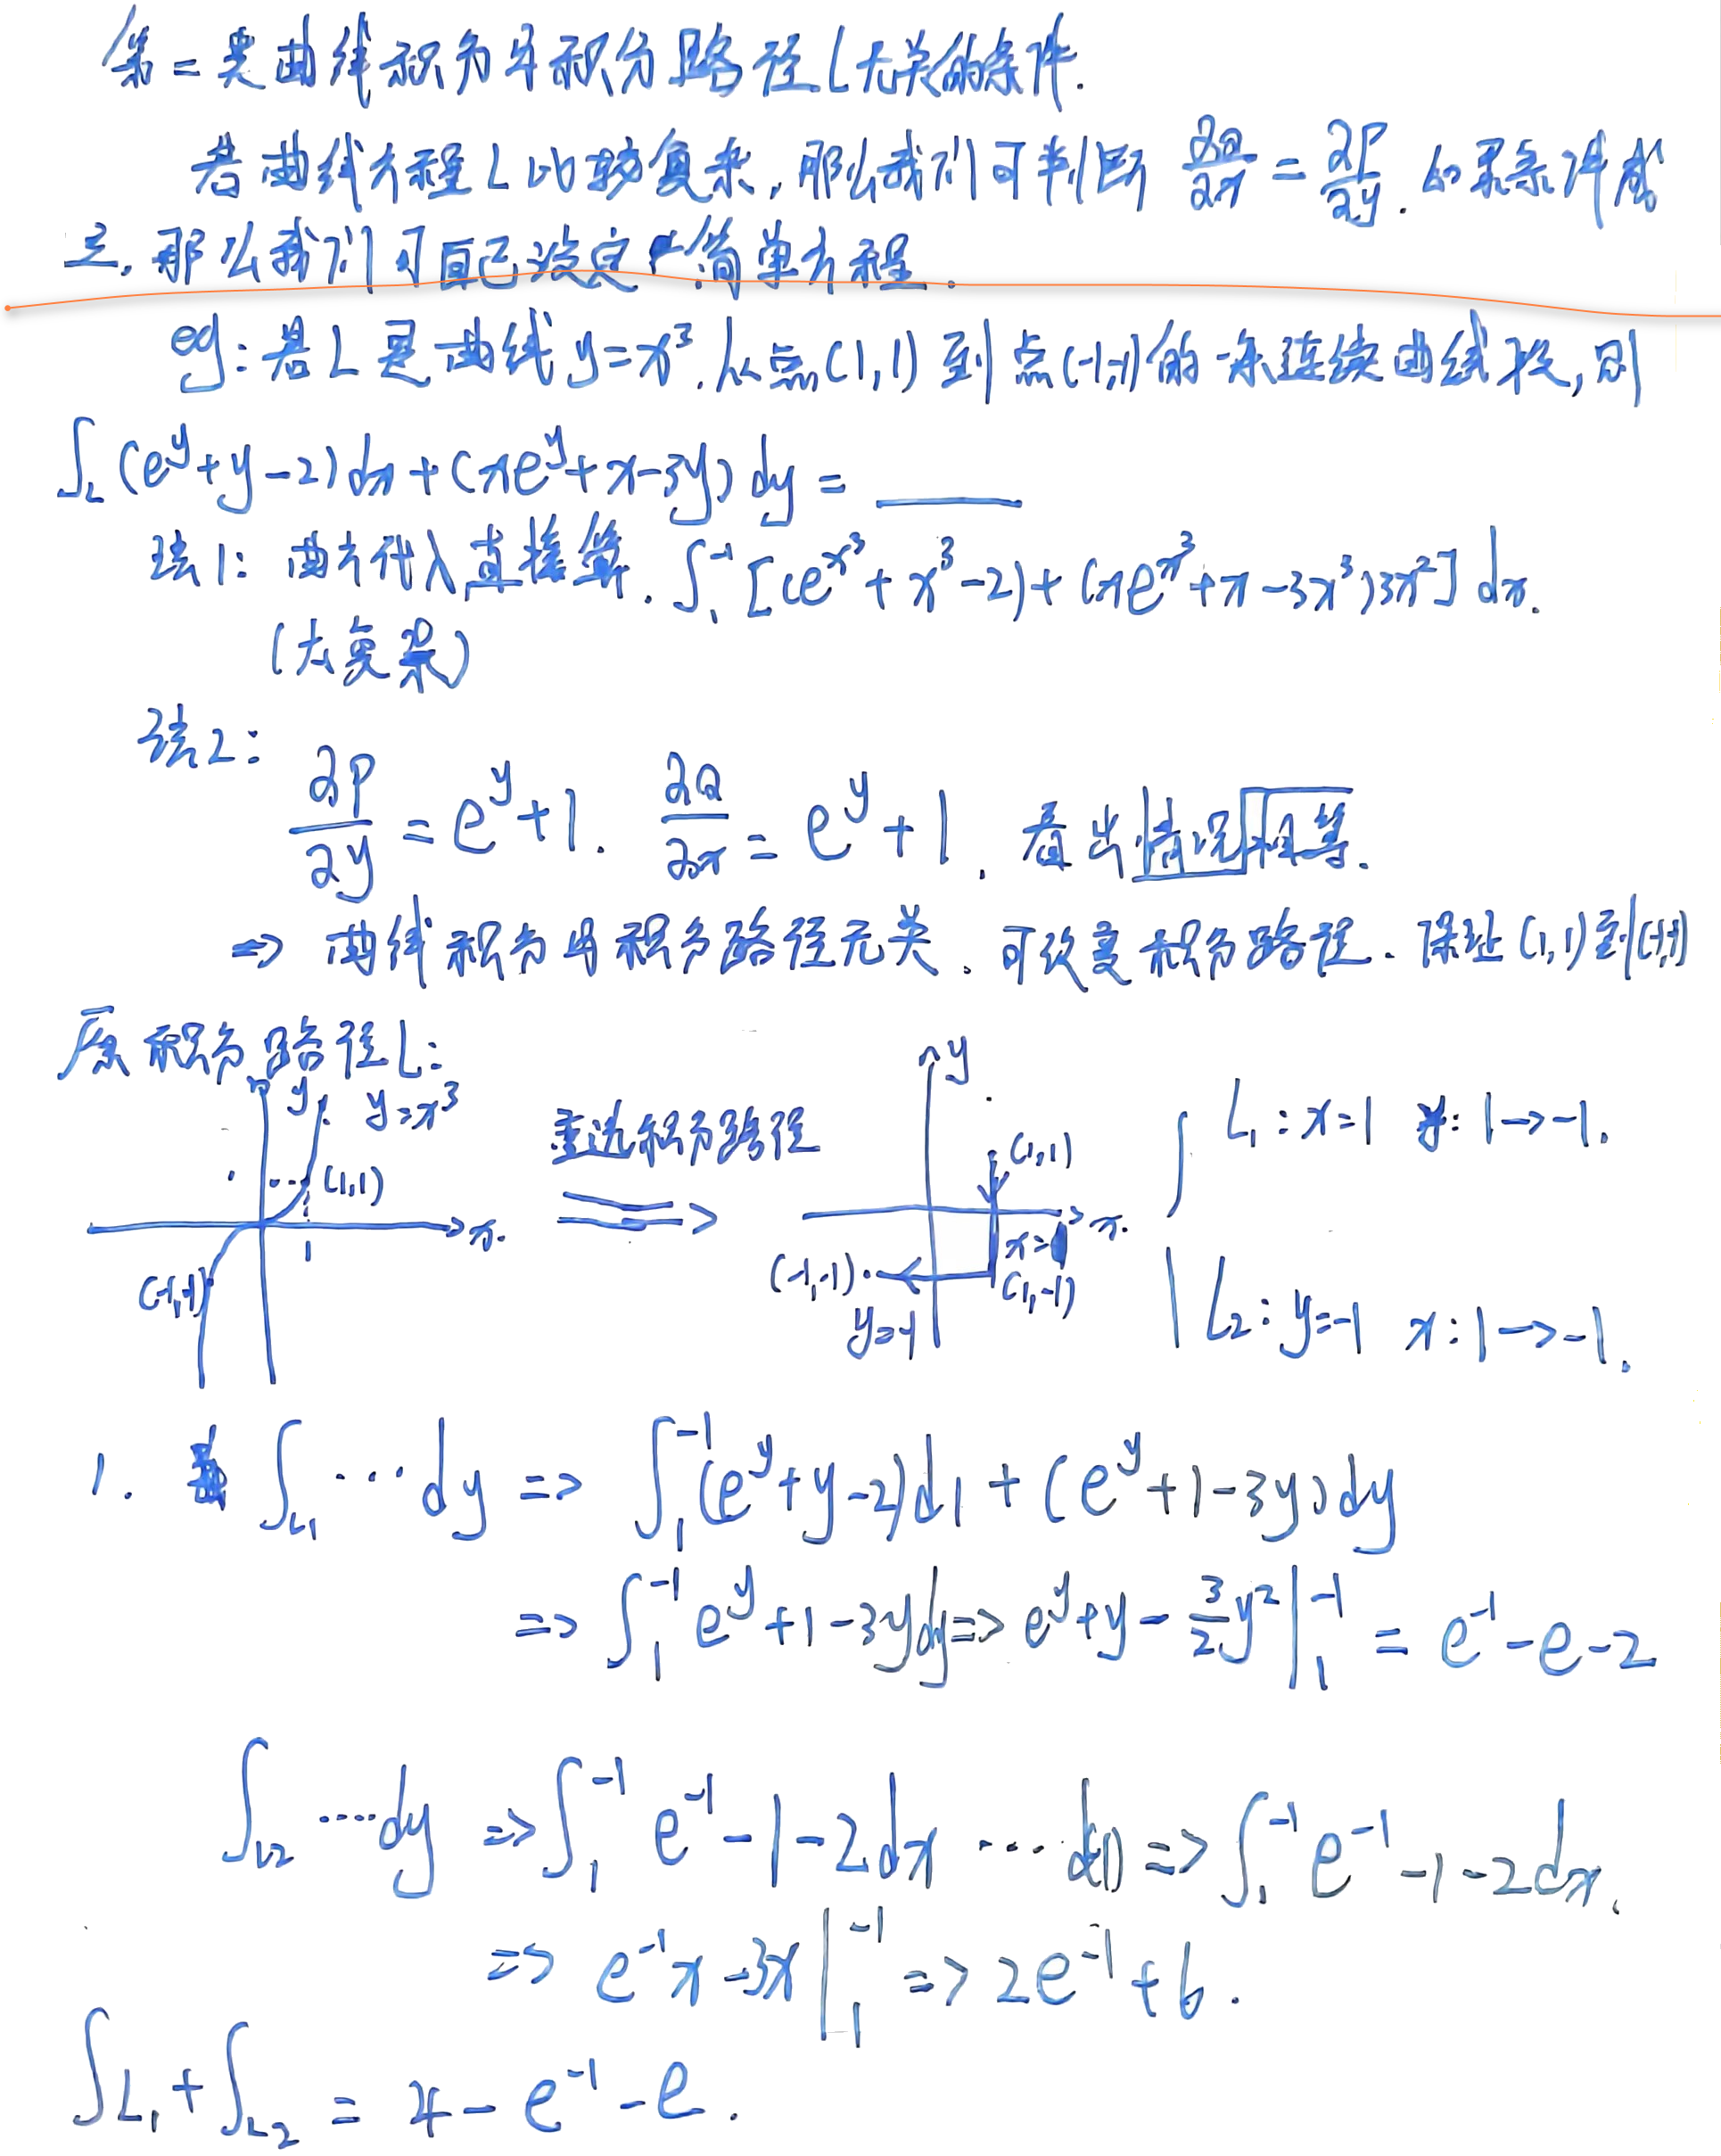 第二类曲线积分与积分路径L无关的条件.
若曲线方程L比较复杂,那么我们可判断 ∂Q/∂x = ∂P/∂y. 如果条件成
立,那么我们可自己设定个简单方程.
eg: 若L是曲线y=x³.从点(1,1)到点(-1,-1)的一条连续曲线段,则
∫_L (e^y+y-2)dx+(xe^y+x-3y)dy = ____
法1: 曲方代入直接算. ∫_1^{-1} [(e^{x³}+x³-2)+(xe^{x³}+x-3x³)3x²] dx.
(太复杂)
法2:
∂P/∂y = e^y+1. ∂Q/∂x = e^y+1. 看出情况相等.
=> 曲线积分与积分路径无关.可改变积分路径.保证(1,1)到(-1,-1)
原积分路径L:
y y=x³ (1,1) 1 x. (-1,-1)
重选积分路径 =>
y (1,1) x. x=1 (-1,-1) (1,-1) y=-1
L₁: x=1 y: 1→-1.
L₂: y=-1 x: 1→-1.
1. ∫_{L₁} ... dy => ∫_1^{-1} (e^y+y-2)d1+(e^y+1-3y)dy
=> ∫_1^{-1} e^y+1-3ydy => e^y+y-3/2y²|_1^{-1} = e^{-1}-e-2
∫_{L2} ....dy => ∫_1^{-1} e^{-1}-1-2dx ...d(-1) => ∫_1^{-1} e^{-1}-1-2dx.
=> e^{-1}x-3x|_1^{-1} => 2e^{-1}+6.
∫L₁+∫_{L₂} = 4-e^{-1}-e.